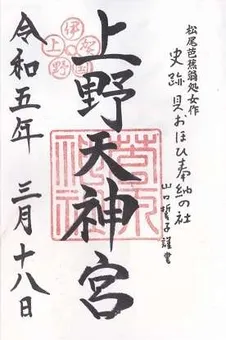 松尾芭蕉翁処女作
史跡 貝おほひ奉納の社
山口誓子謹書
上野天神宮
伊賀国
上野
令和五年 三月十八日